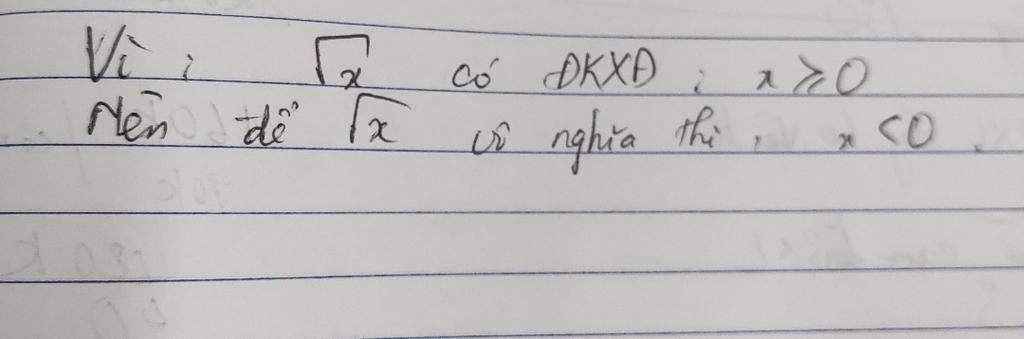 Vì : √x có ĐKXĐ : x ≥ 0
Nên để √x vô nghĩa thì : x < 0 .